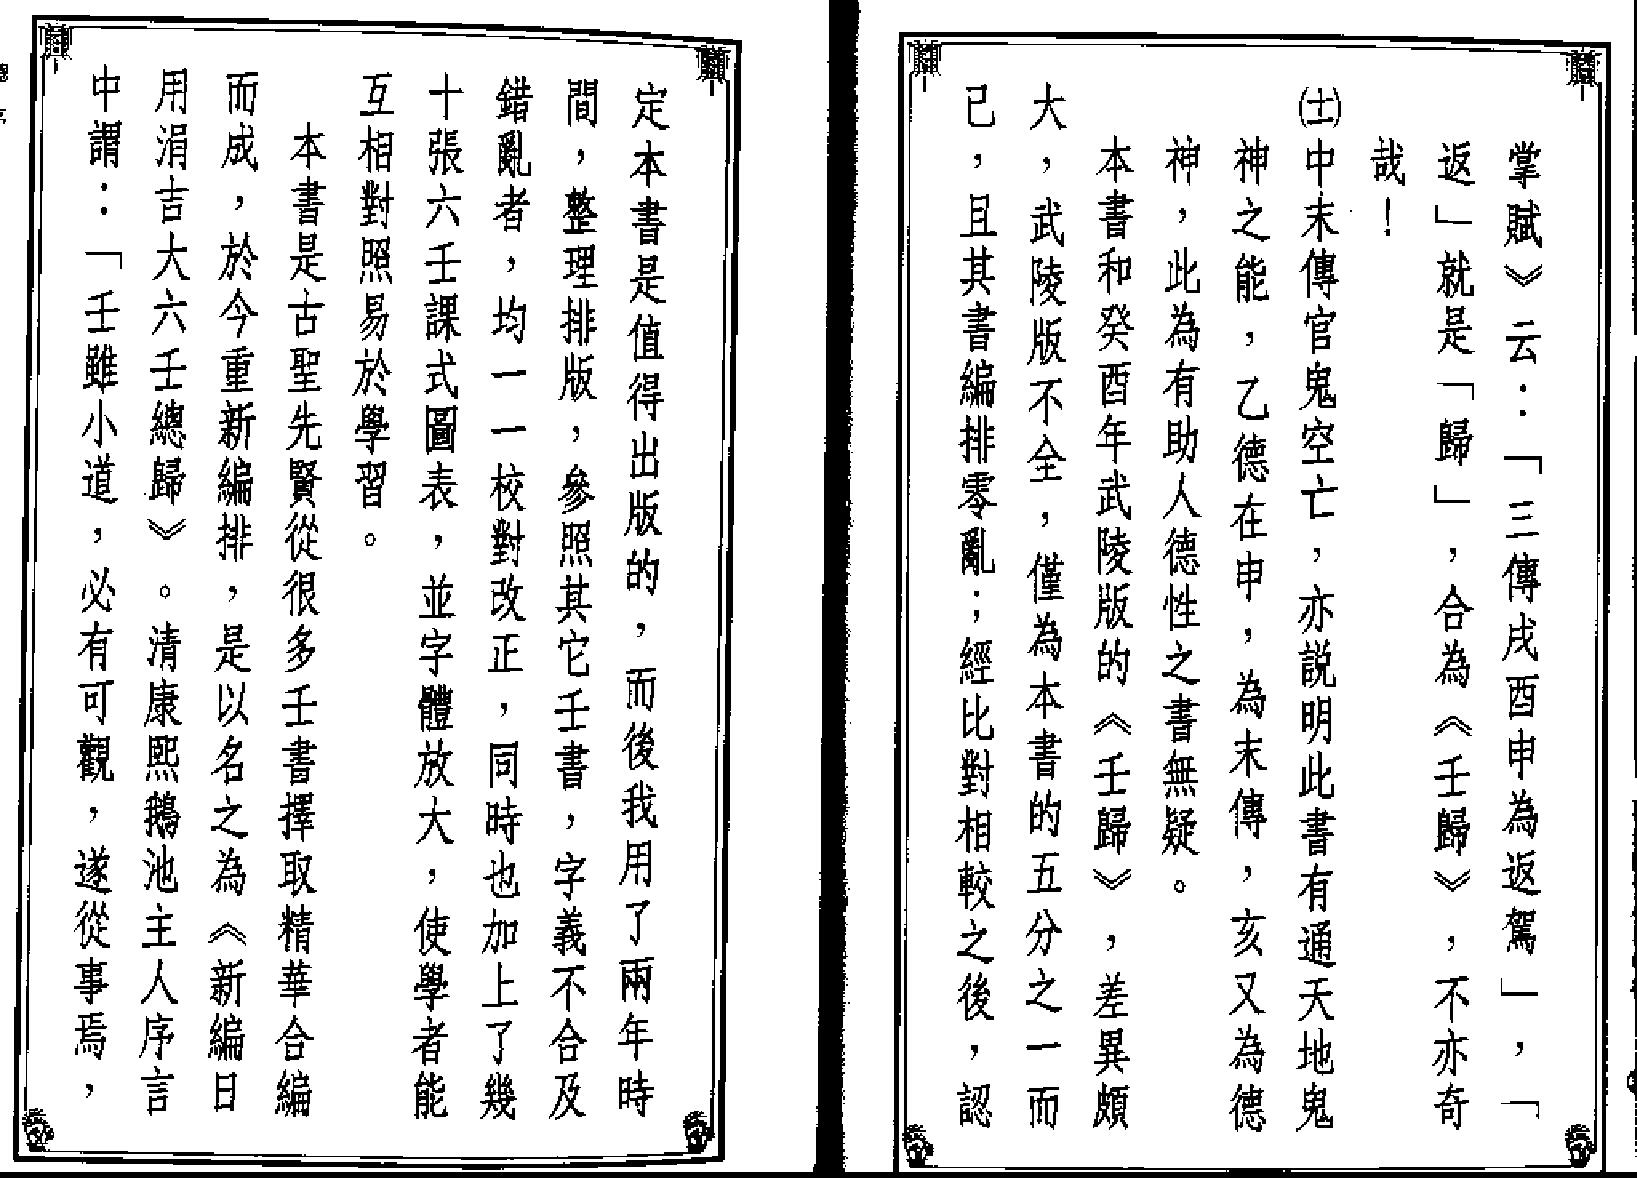 掌賦》云：「三傳戌酉申為返駕」，「
返」就是「歸」，合為《壬歸》，不亦奇
哉！
㈩中末傳官鬼空亡，亦説明此書有通天地鬼
神之能，乙德在申，為末傳，亥又為德
神，此為有助人德性之書無疑。
本書和癸酉年武陵版的《壬歸》，差異頗
大，武陵版不全，僅為本書的五分之一而
已，且其書編排零亂；經比對相較之後，認
定本書是值得出版的，而後我用了兩年時
間，整理排版，參照其它壬書，字義不合及
錯亂者，均一一校對改正，同時也加上了幾
十張六壬課式圖表，並字體放大，使學者能
互相對照易於學習。
本書是古聖先賢從很多壬書擇取精華合編
而成，於今重新編排，是以名之為《新編日
用涓吉大六壬總歸》。清康熙鵝池主人序言
中謂：「壬雖小道，必有可觀，遂從事焉，